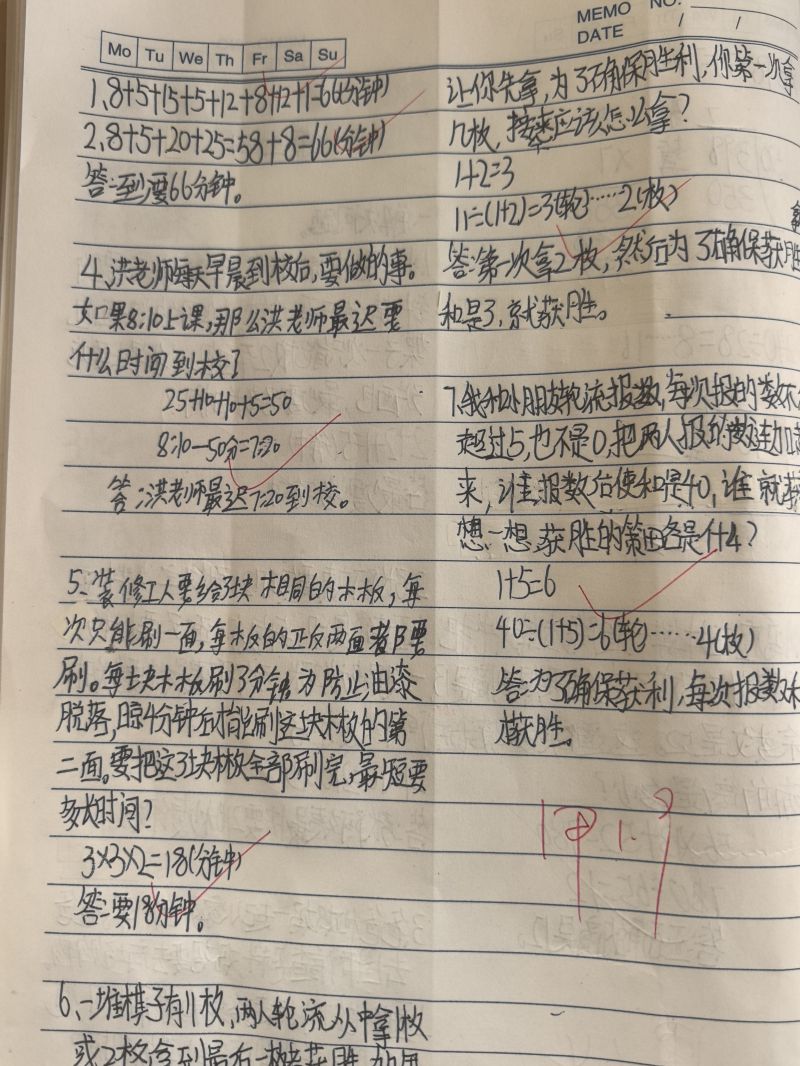 MEMO NO.
DATE / /
Mo Tu We Th Fr Sa Su
1、8+5+15+5+12+8+12+1=66(分钟)
2、8+5+20+25=58+8=66(分钟)
答:到要66分钟。
4、洪老师每天早晨到校后,要做的事。
如果8:10上课,那么洪老师最迟要
什么时间到校?
25+10+10+5=50
8:10-50分=7:20
答:洪老师最迟7:20到校。
5、装修工人要给3块相同的木板,每
次只能刷一面,每木板的正反两面都要
刷。每块木板刷3分钟为防止油漆
脱落,晾4分钟后才能刷这块木板的第
二面。要把这3块木板全部刷完,最短要
多长时间?
3×3×2=18(分钟)
答:要18分钟。
6、一堆棋子有11枚,两人轮流从中拿1枚
或2枚,拿到最后一枚获胜,如果
让你先拿,为了确保胜利,你第一次拿
几枚,接来应该怎么拿?
1+2=3
11÷(1+2)=3(轮)……2(枚)
答:第一次拿2枚,然后为了确保获胜
和是3,就获胜。
7、我和小朋友轮流报数,每次报的数不
超过5,也不是0,把两人报的数连加起
来,谁报数后使和是40,谁就获
想一想,获胜的策略是什么?
1+5=6
40÷(1+5)=6(轮)……4(枚)
答:为了确保获利,每次报数
获胜。